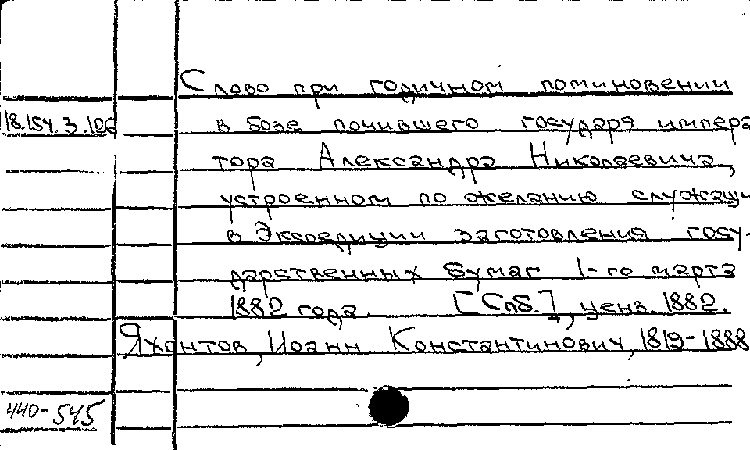 Слово при годичном поминовении
18.154.3.106
в бозе почившего государя импера
тора Александра Николаевича,
устроенном по желанию служащи
в Экспедиции заготовления госу-
дарственных бумаг 1-го марта
1882 года. [Спб.], ценз. 1882.
Яхонтов, Иоанн Константинович, 1819-1888
440-545